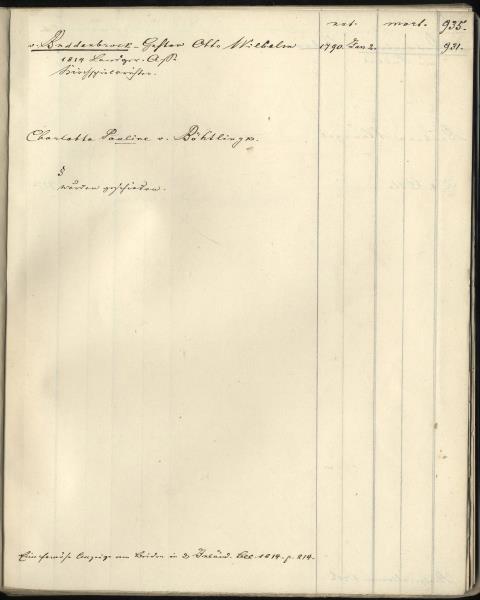 nat. mort. 935.
v. Buddenbrock - Gustav Otto Wilhelm 1790. Jan 2. 931.
1814 Landger. Ass.
Kirchspielsrichter.
Charlotte Pauline v. Böhtlingk.
wurden geschieden.
Anzeige von Beiden in d. 1814. p. 214.